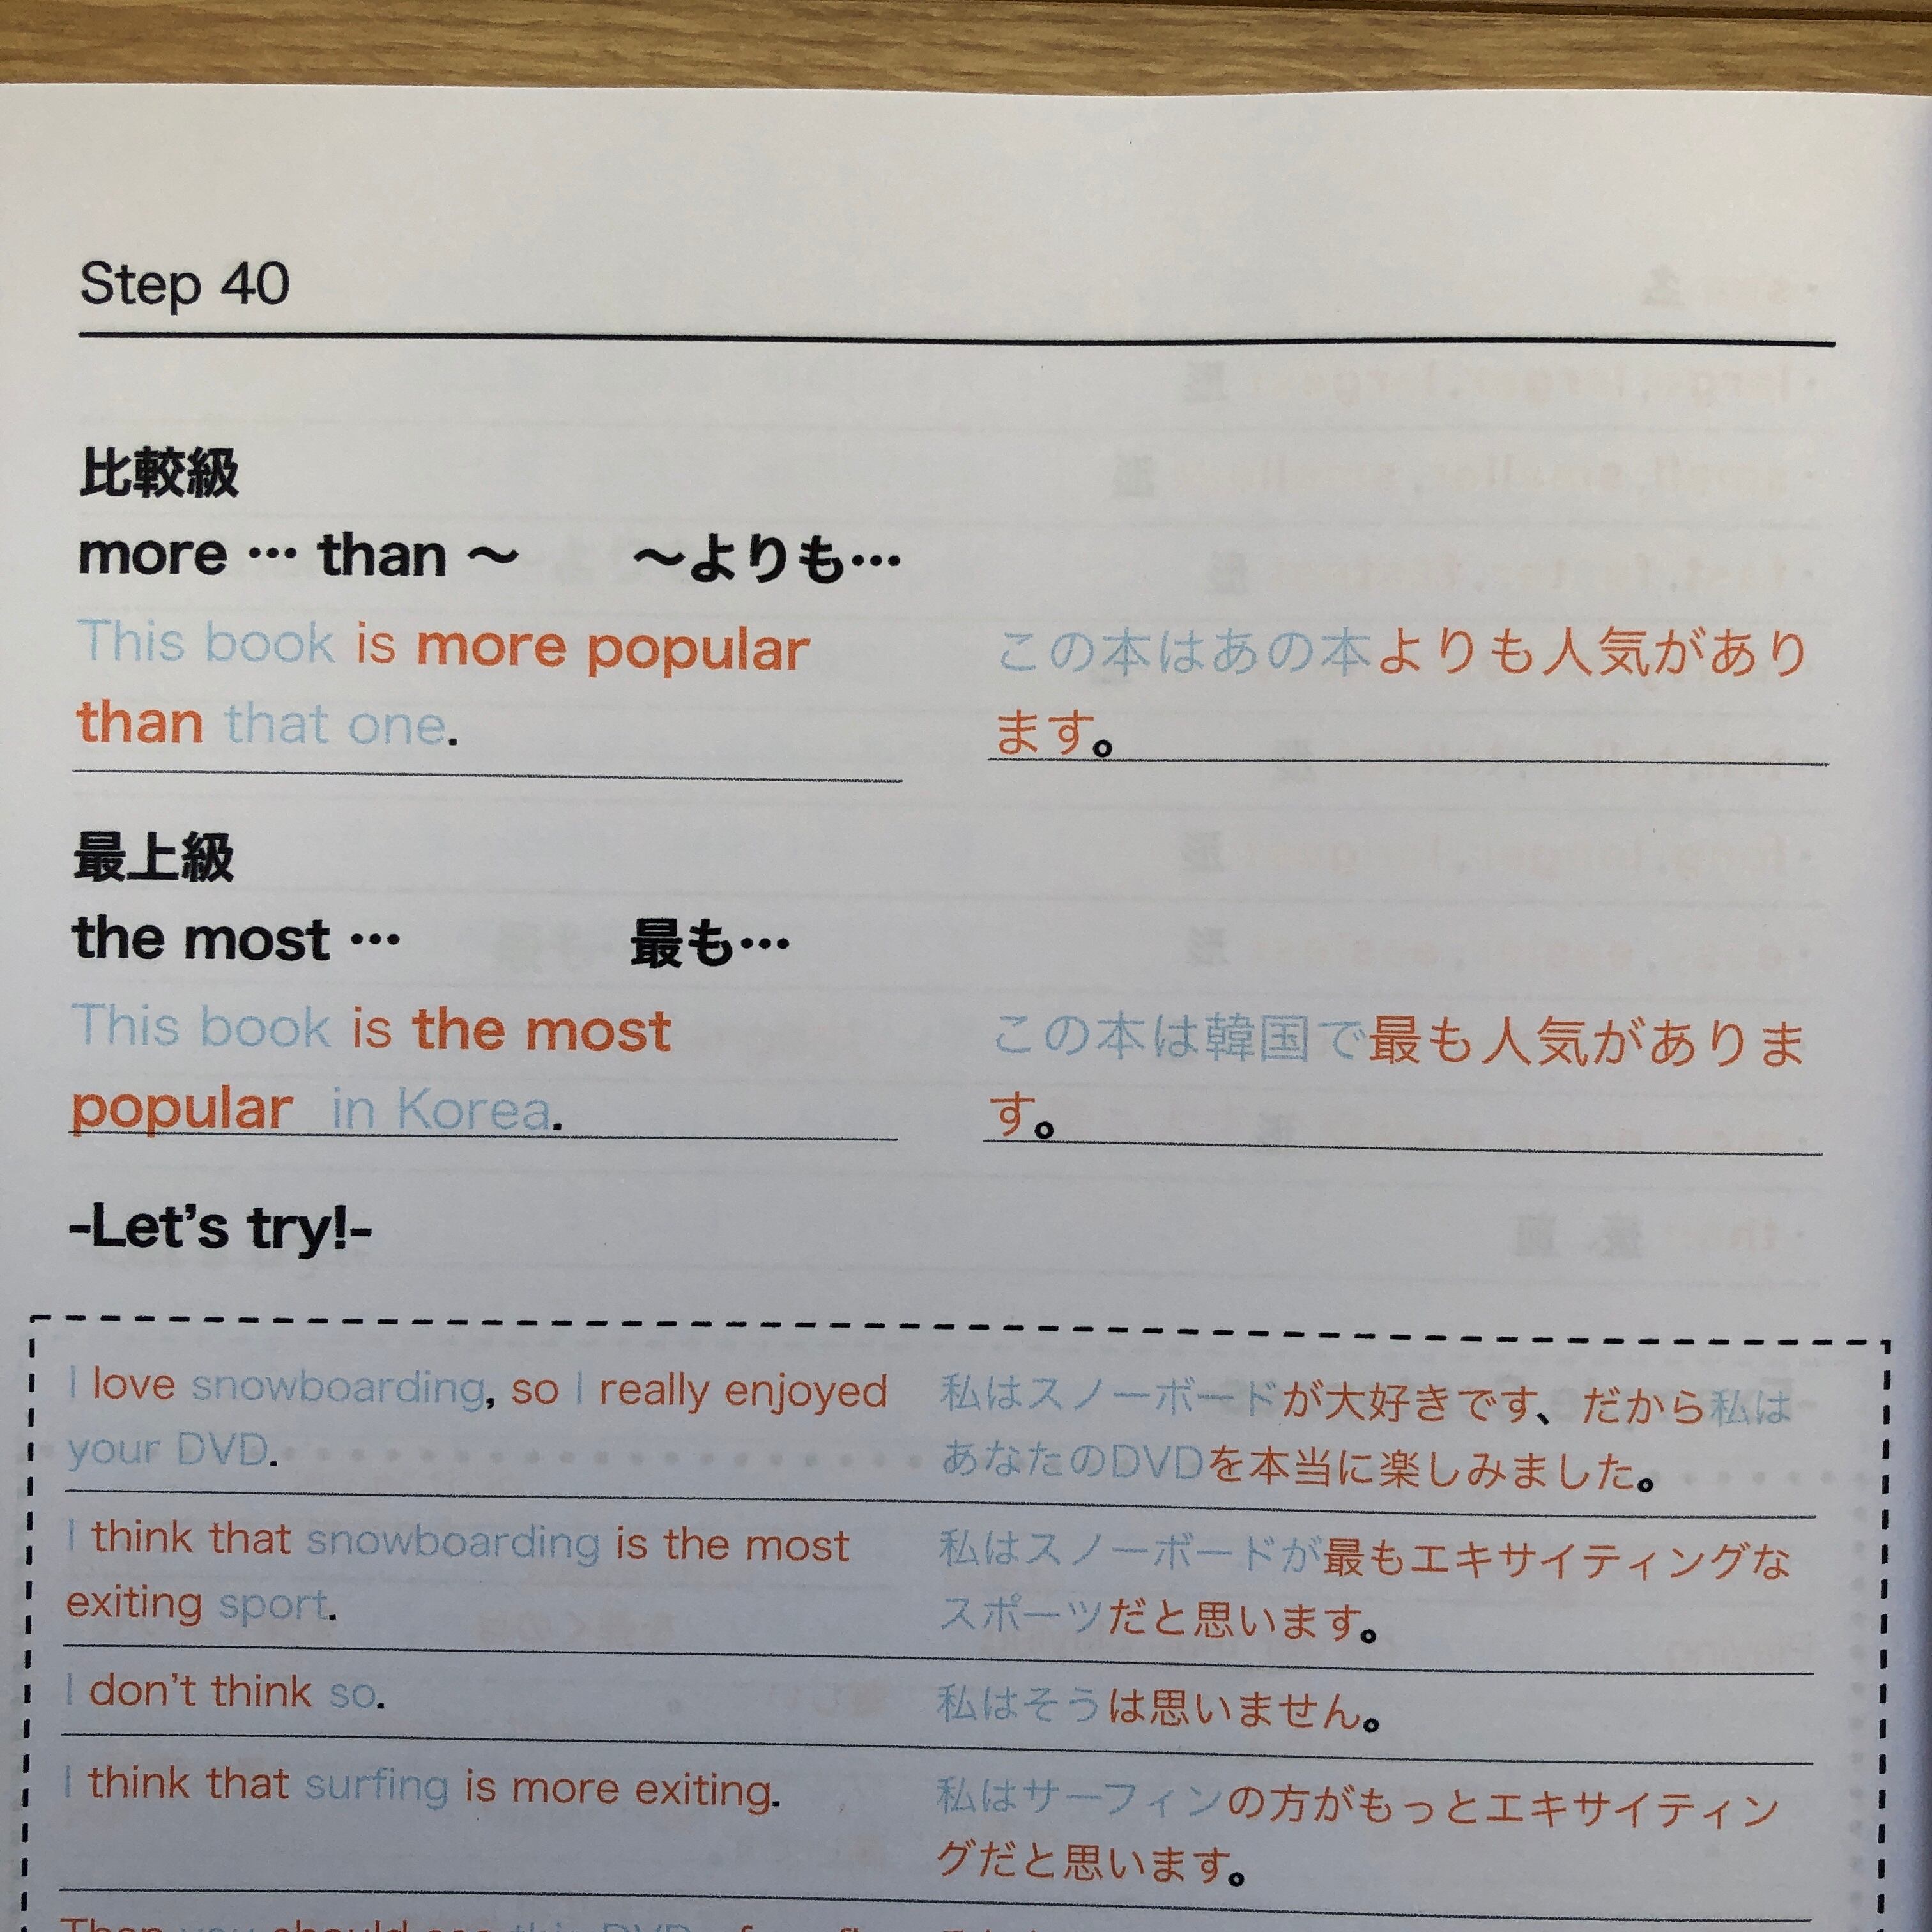 Step 40
比較級
more … than ～ ～よりも…
This book is more popular
than that one.
この本はあの本よりも人気があり
ます。
最上級
the most … 最も…
This book is the most
popular in Korea.
この本は韓国で最も人気がありま
す。
-Let's try!-
I love snowboarding, so I really enjoyed
your DVD.
私はスノーボードが大好きです、だから私は
あなたのDVDを本当に楽しみました。
I think that snowboarding is the most
exiting sport.
私はスノーボードが最もエキサイティングな
スポーツだと思います。
I don't think so.
私はそうは思いません。
I think that surfing is more exiting.
私はサーフィンの方がもっとエキサイティン
グだと思います。